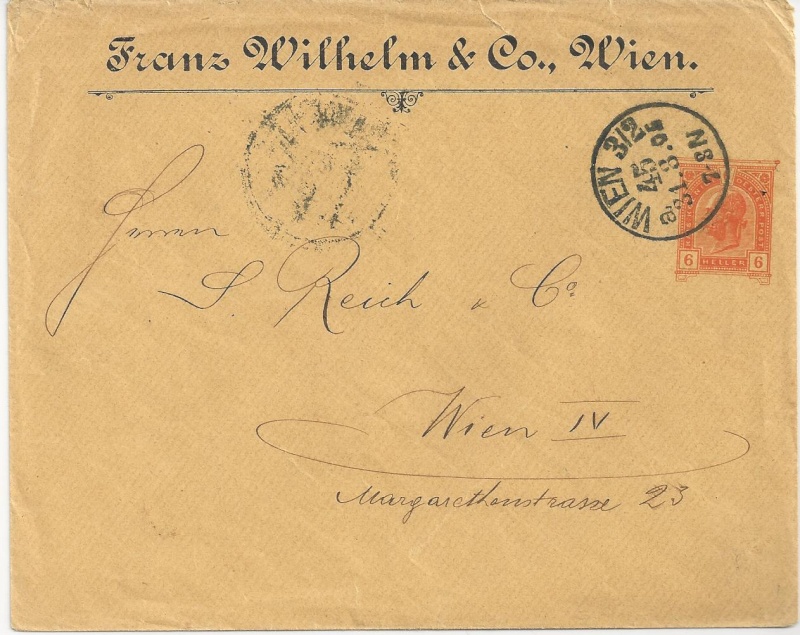 Franz Wilhelm & Co., Wien.
WIEN 3/2
7-8N
6 HELLER 6
Herren
S. Reich & Co
Wien IV
Margarethenstrasse 23